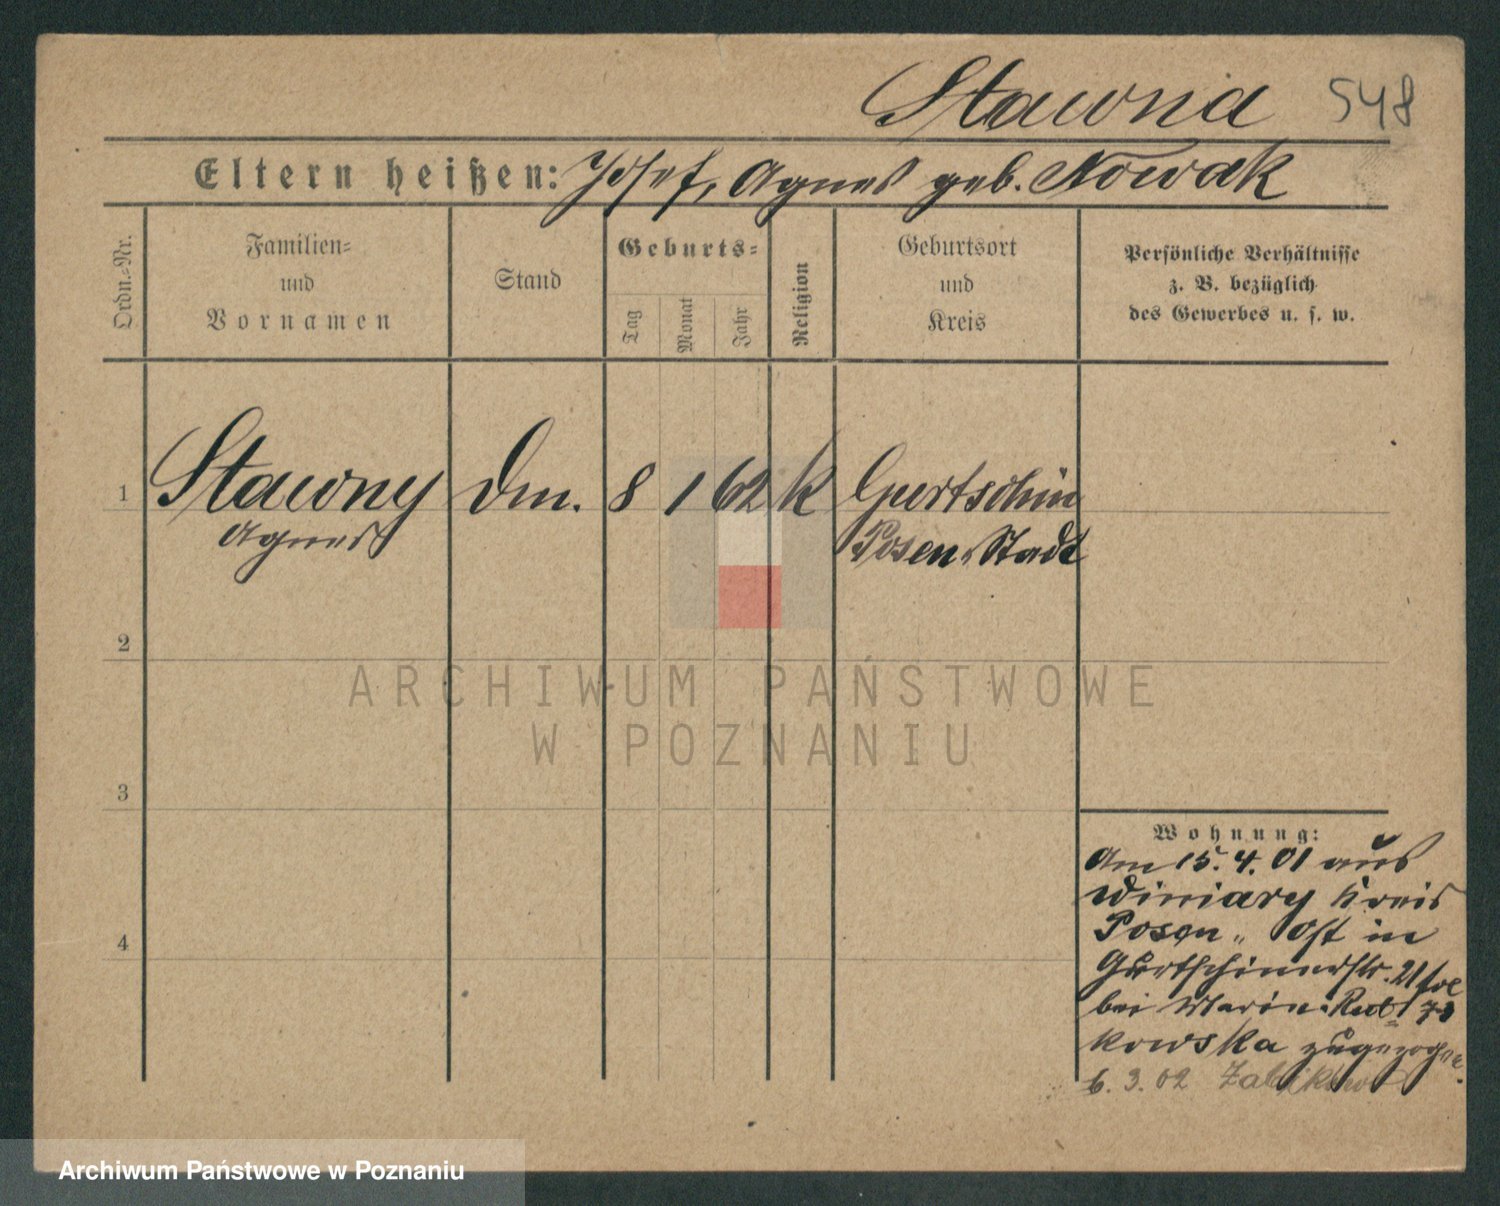 Stawna 548
Eltern heißen: Josef, Agnes geb. Nowak
Ordn.-Nr.
Familien-
und
Vornamen
Stand
Geburts-
Tag
Monat
Jahr
Religion
Geburtsort
und
Kreis
Persönliche Verhältnisse
z. B. bezüglich
des Gewerbes u. s. w.
1 Stawny Dm. 8 1 62 K Gurtschin
Agnes Posen-Stadt
2
3
4
Wohnung:
Am 15. 4. 01 aus
Winiary Kreis
Posen Ost in
Gurtschinerstr. 21
bei Marin
kowska zugezogen.
6. 3. 02 Zabikowo
ARCHIWUM PAŃSTWOWE
W POZNANIU
Archiwum Państwowe w Poznaniu